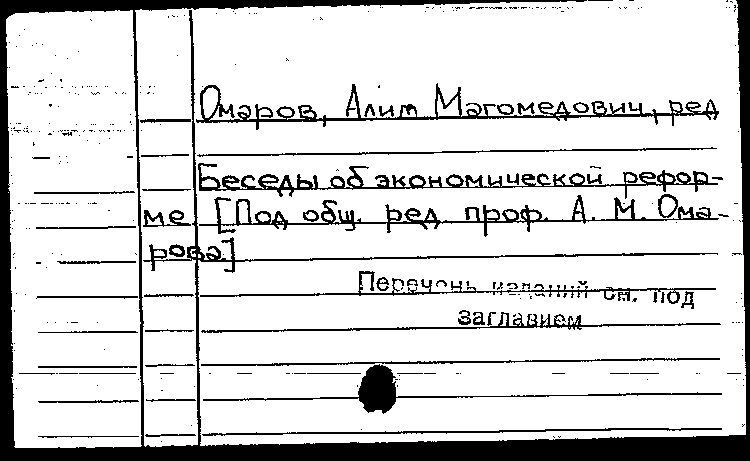 Омаров, Алим Магомедович, ред
Беседы об экономической рефор-
ме [Под общ. ред. проф. А. М. Ома-
рова]
Перечень изданий см. под
заглавием